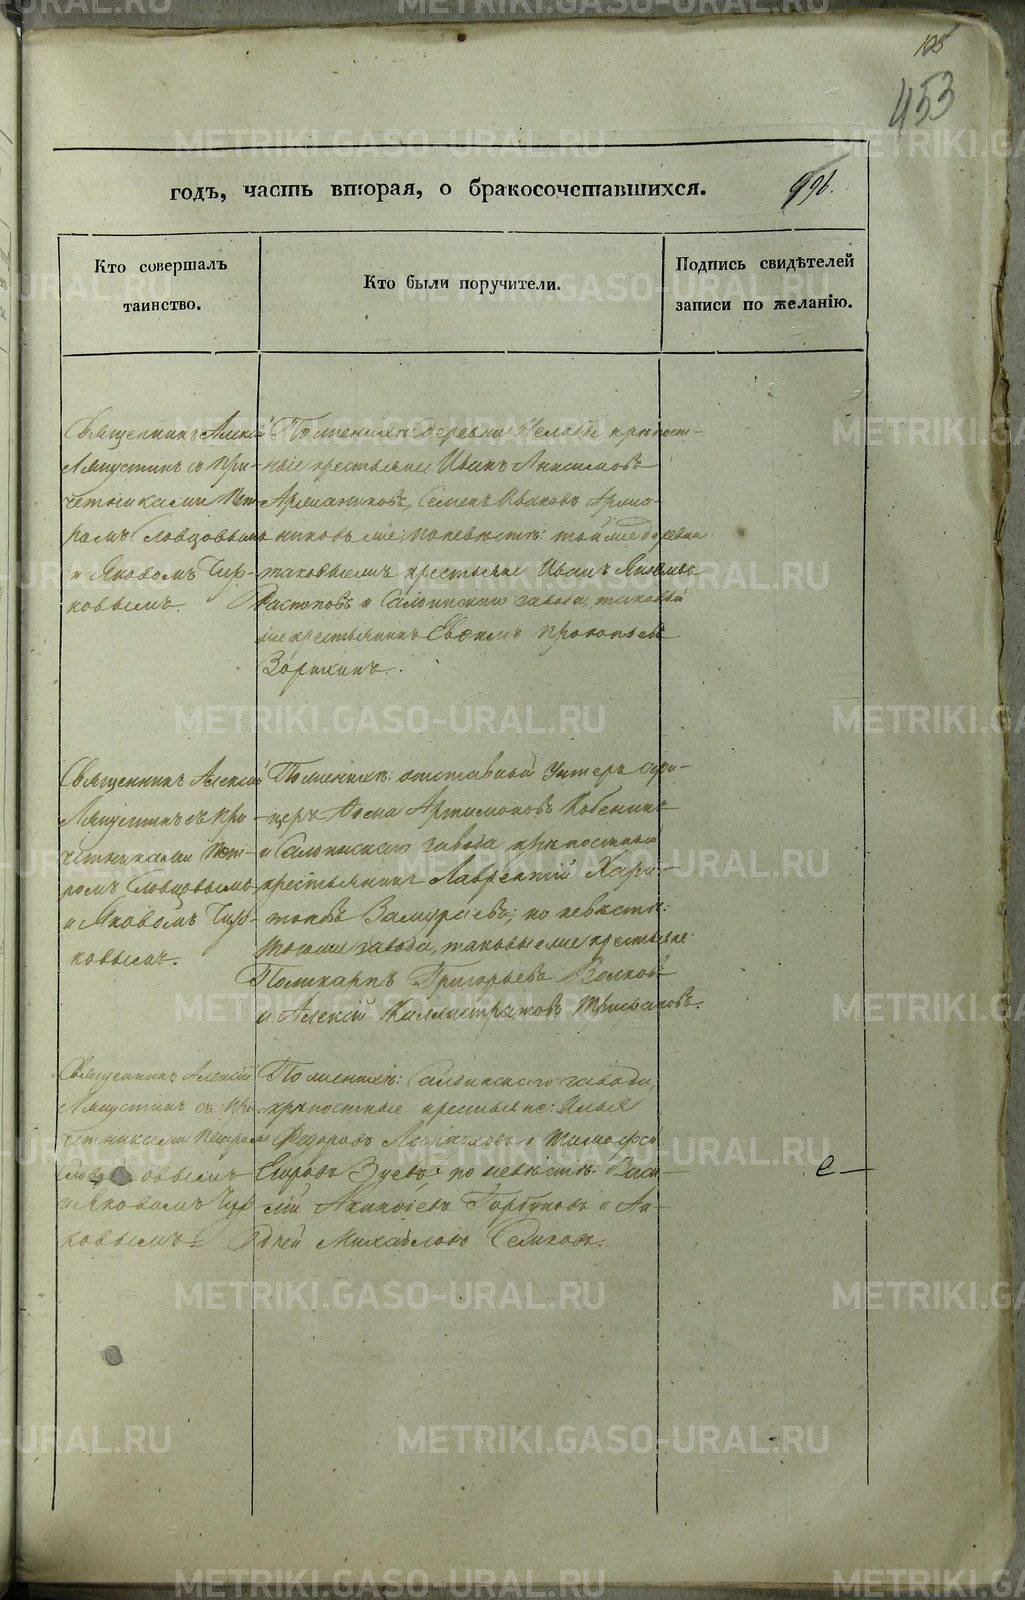 105
453
годъ, часть вторая, о бракосочетавшихся.
196.
Кто совершалъ
таинство.
Кто были поручители.
Подпись свидѣтелей
записи по желанію.
Священникъ Алексій
Ляпустинъ съ При-
четниками Пет-
ромъ Словцовымъ
и Яковомъ Чир-
ковымъ.
По женихѣ: деревни Нелобы крѣпост-
ные крестьяне Иванъ Анисимовъ
Семенъ Ивановъ
же; по невѣстѣ: той же деревни
таковыежъ крестьяне Иванъ Яковлевъ
и Салдинскаго завода, таковый
же крестьянинъ Евфимъ Прокопьевъ
Зорихинъ.
Священникъ Алексій
Ляпустинъ съ При-
четниками Пет-
ромъ Словцовымъ
и Яковомъ Чир-
ковымъ.
По женихѣ: отставный Унтеръ офи-
церъ Фома Артамоновъ
и Салдинскаго завода крѣпостный
крестьянинъ Лаврентій Хари-
тоновъ Замураевъ; по невѣстѣ:
тогоже завода, таковыеже крестьяне:
Поликарпъ Григорьевъ Волковъ
и Алексій Каллистратовъ
Священникъ Алексій
Ляпустинъ съ При-
четниками Петромъ
Словцовымъ
и Яковомъ Чир-
ковымъ.
По женихѣ: Салдинскаго завода,
крѣпостные крестьяне: Илья
Федоровъ и Тимофей
Егоровъ Зуевъ; по невѣстѣ: Васи-
лій Акинфіевъ Горбуновъ и Ан-
дрей Михайловъ